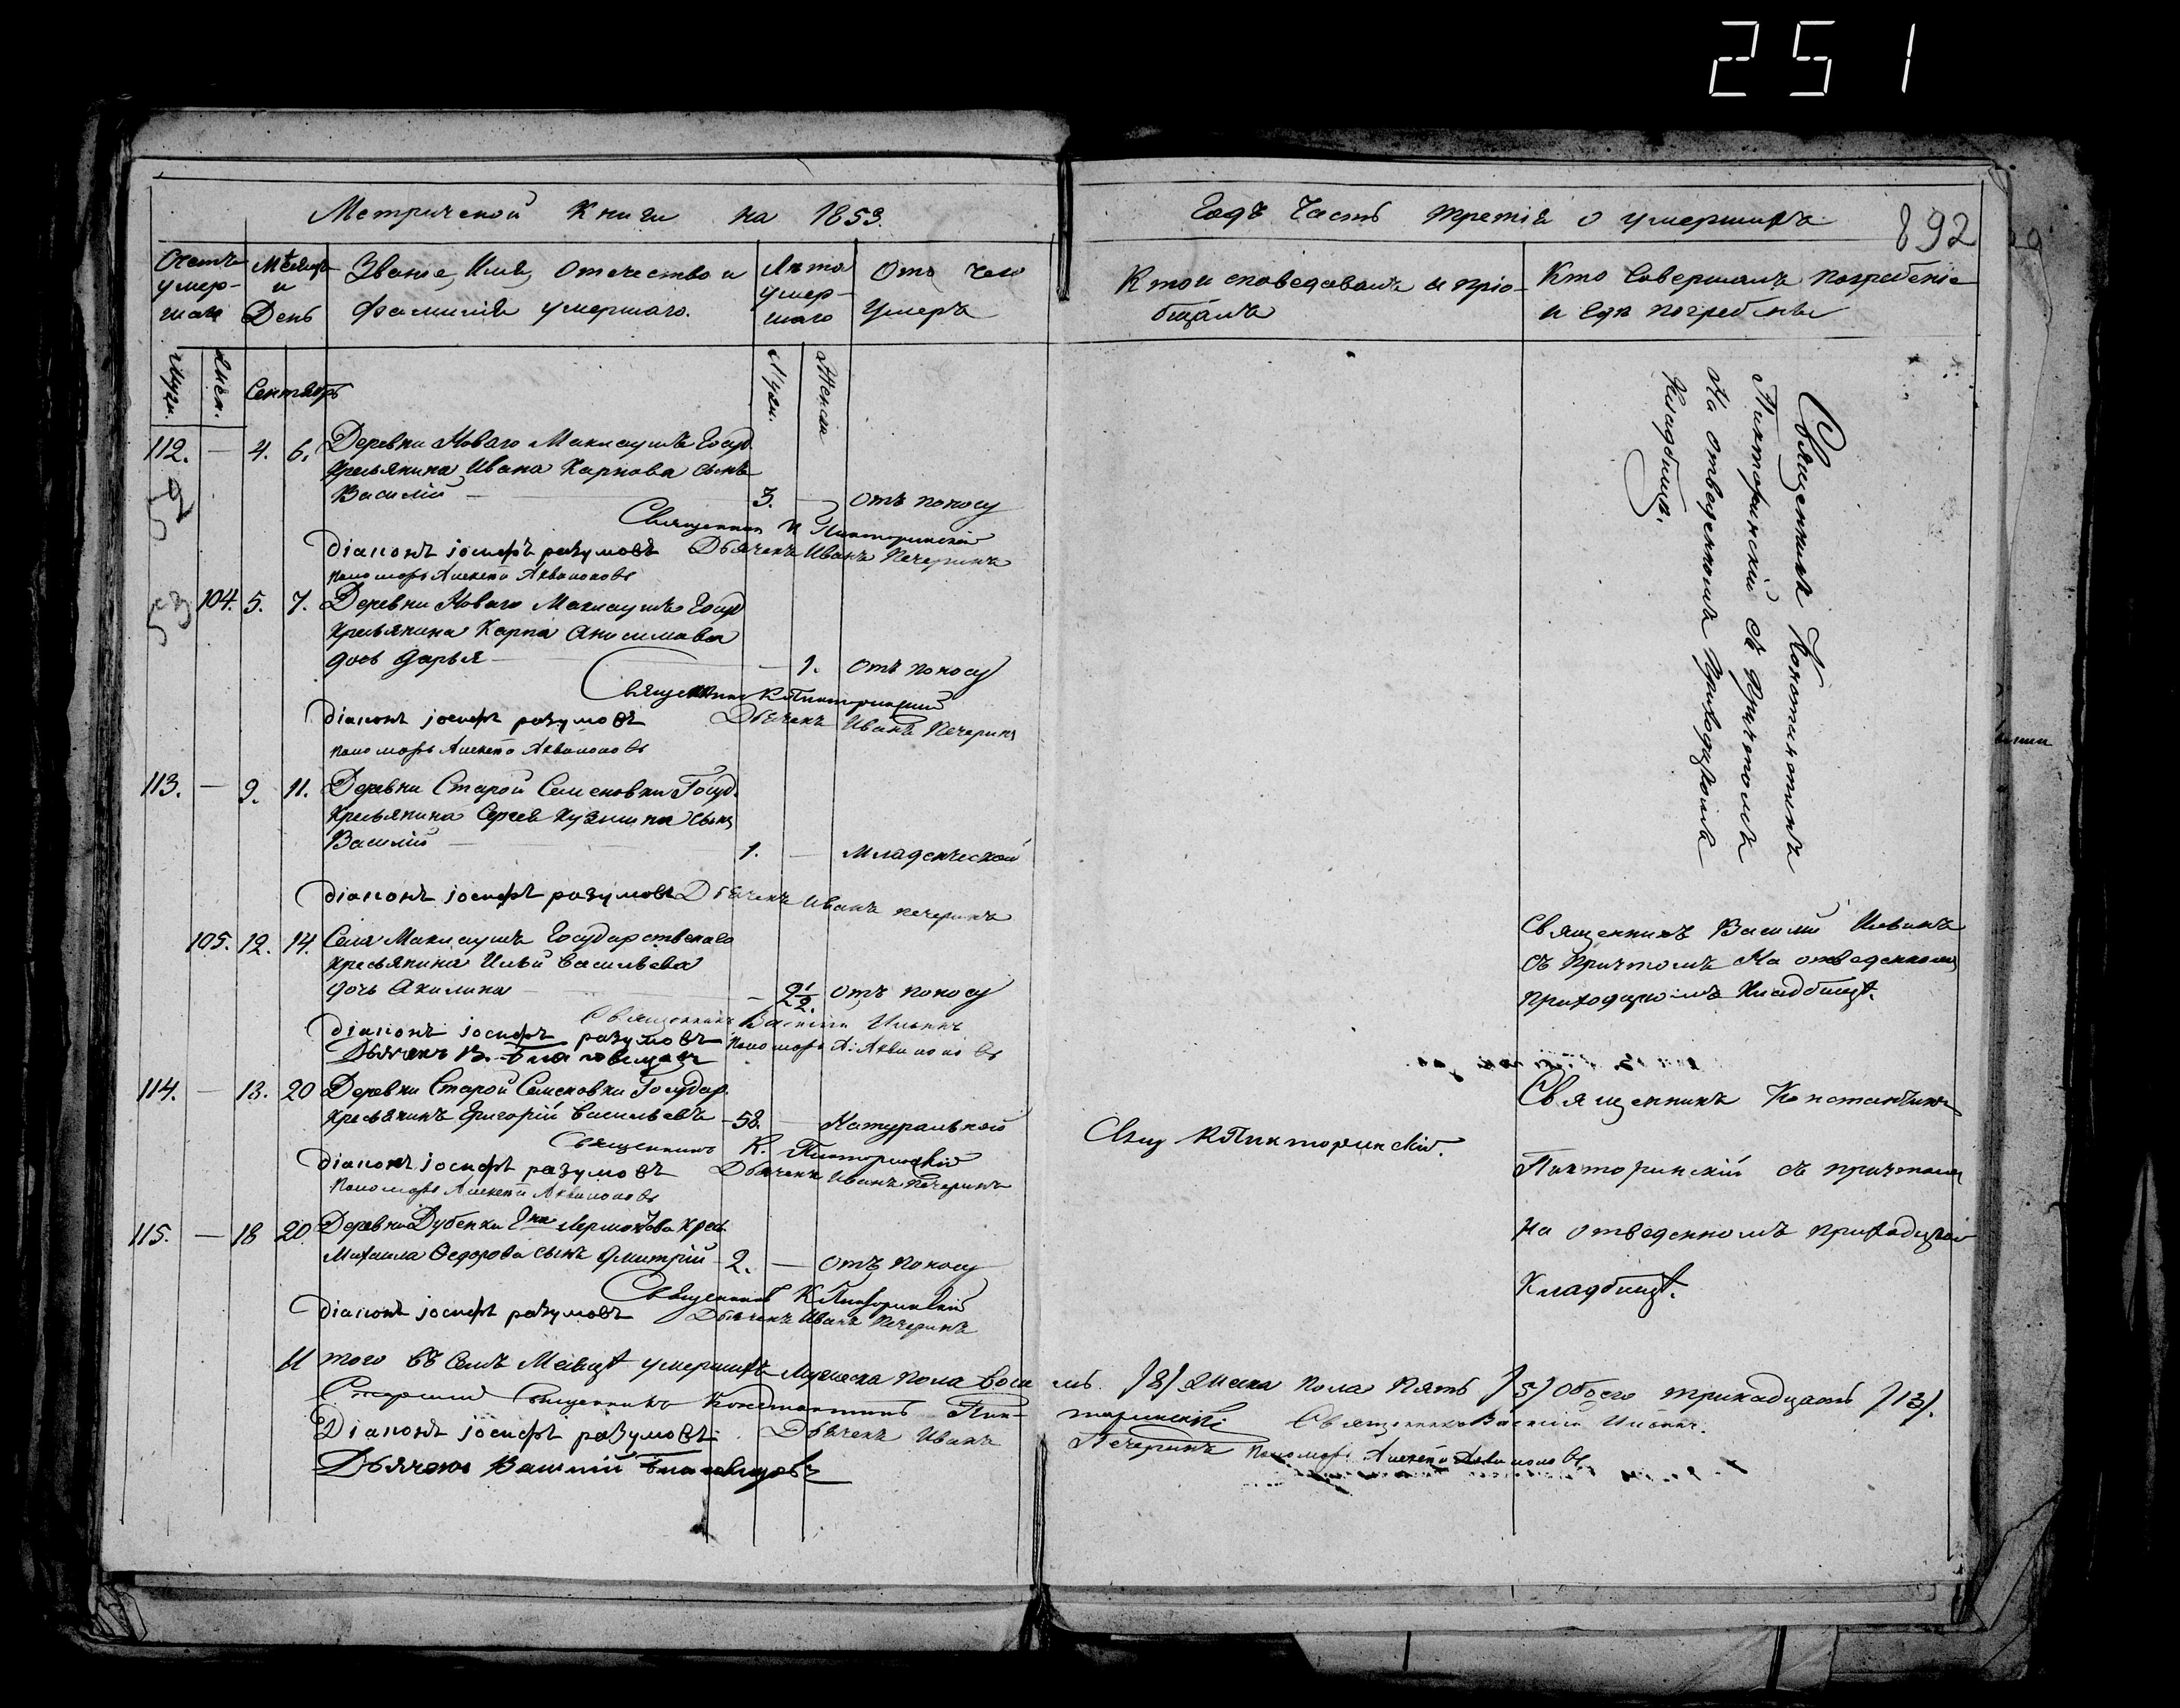 251
Метрической Книги на 1853.
Годъ Часть третія о умершихъ
892
Счетъ умер-шихъ
Мѣсяцъ и День
Званіе, Имя, Отечество и фамилія умершаго.
Лѣта умер-шаго
Отъ чего Умеръ
Кто исповедовалъ и пріо-бщалъ
Кто Совершалъ погребеніе и гдѣ погребены
Муж.
Жен.
Сентябрь
Муж.
Женск
112. — 4. 6. Деревни Новаго Маклауша Госуд.
крестьянина Ивана Карпова сынъ
Василій — 3. — отъ поносу
Священникъ К Пикторинскій
діаконъ іосифъ разумовъ Дьячекъ Иванъ Печеринъ
пономарь Алексей Аквилоновъ
52
53
104. 5. 7. Деревни Новаго Маклауша Госуд
крестьянина Карпа Анисимова
дочь Дарья — 1. отъ поносу
Священникъ К Пикторинскій
діаконъ іосифъ разумовъ Дьячекъ Иванъ Печеринъ
пономарь Алексей Аквилоновъ
113. — 9. 11. Деревни Старой Семеновки Госуд.
крестьянина Сергея Кузмина сынъ
Василій — 1. — Младенческой
діаконъ іосифъ разумовъ Дьячекъ Иванъ Печеринъ
Священникъ Константинъ
Пикторинскій съ Причтомъ
На отведенномъ Приходскомъ
Кладбищѣ.
105. 12. 14. Села Маклауша Государственаго
крестьянина Ильи Васильева
дочь Акилина — 2 1/2. отъ поносу
Священникъ Василій Ильинъ
діаконъ іосифъ разумовъ пономарь А. Аквилоновъ
Дьячекъ В.
Священникъ Василий Ильинъ
съ Причтомъ На отведенномъ
приходскомъ Кладбищѣ.
114. — 13. 20 Деревни Старой Семеновки Государ.
крестьянинъ Григорій Васильевъ — 58. — Натуральной
Священникъ К. Пикторинскій
діаконъ іосифъ разумовъ Дьячекъ Иванъ Печеринъ
Пономарь Алексей Аквилоновъ
Свящ К Пикторинскій.
Священникъ Константинъ
Пикторинскій съ причтомъ
на отведенномъ приходскомъ
Кладбищѣ.
115. — 18 20 Деревни Дубенки Гна Лермонтова крес.
Михаила Федорова сынъ Дмитрій — 2. — отъ поносу
Священникъ К Пикторинскій
діаконъ іосифъ разумовъ Дьячекъ Иванъ Печеринъ
И того въ семъ Месяцѣ умершихъ Мужеска пола восемь. /8/ Женска пола Пять /5/ Обоего тринадцать /13/.
Старший Священникъ Константинъ Пикторинскій. Священникъ Василій Ильинъ.
Діаконъ іосифъ разумовъ. Дьячекъ Иванъ Печеринъ Пономарь Алексей Аквилоновъ
Дьячекъ Василий